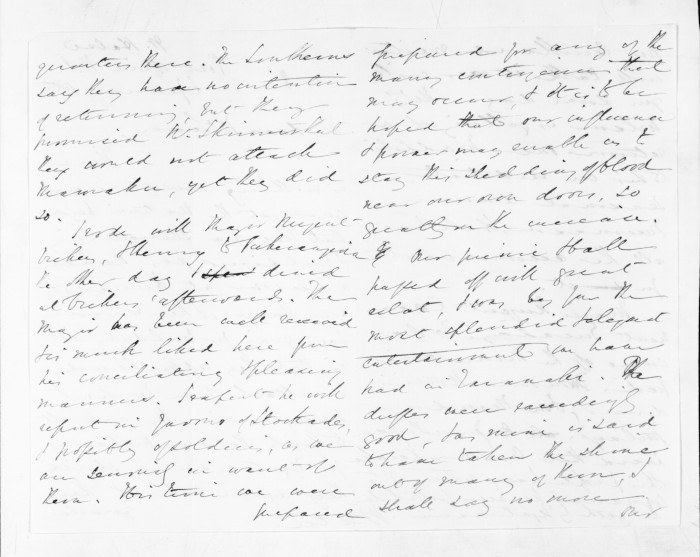 quarters there. The Southerners
say they have no intention
of returning, but they
promised W. Skinner that
they would not attack
yet they did
so.
I rode with Major Nugent
& Henry to
the other day & dined
at afterwards. The
Major has been well received
& is much liked here from
his conciliating & pleasing
manners. I expect he will
report in favour of Stockades,
& possibly of soldiers, as we
are seriously in want of
them. It is time we were
prepared
prepared for any of the
many contingencies that
may occur, & it is to be
hoped that our influence
& power may enable us to
stay this shedding of blood
near our own doors, so
greatly on the increase.
Our picnic & ball
passed off with great
eclat, & was by far the
most splendid & elegant
entertainment we have
had in Taranaki. The
dresses were exceedingly
good, & as mine is said
to have taken the shine
out of many of them, I
shall say no more
our